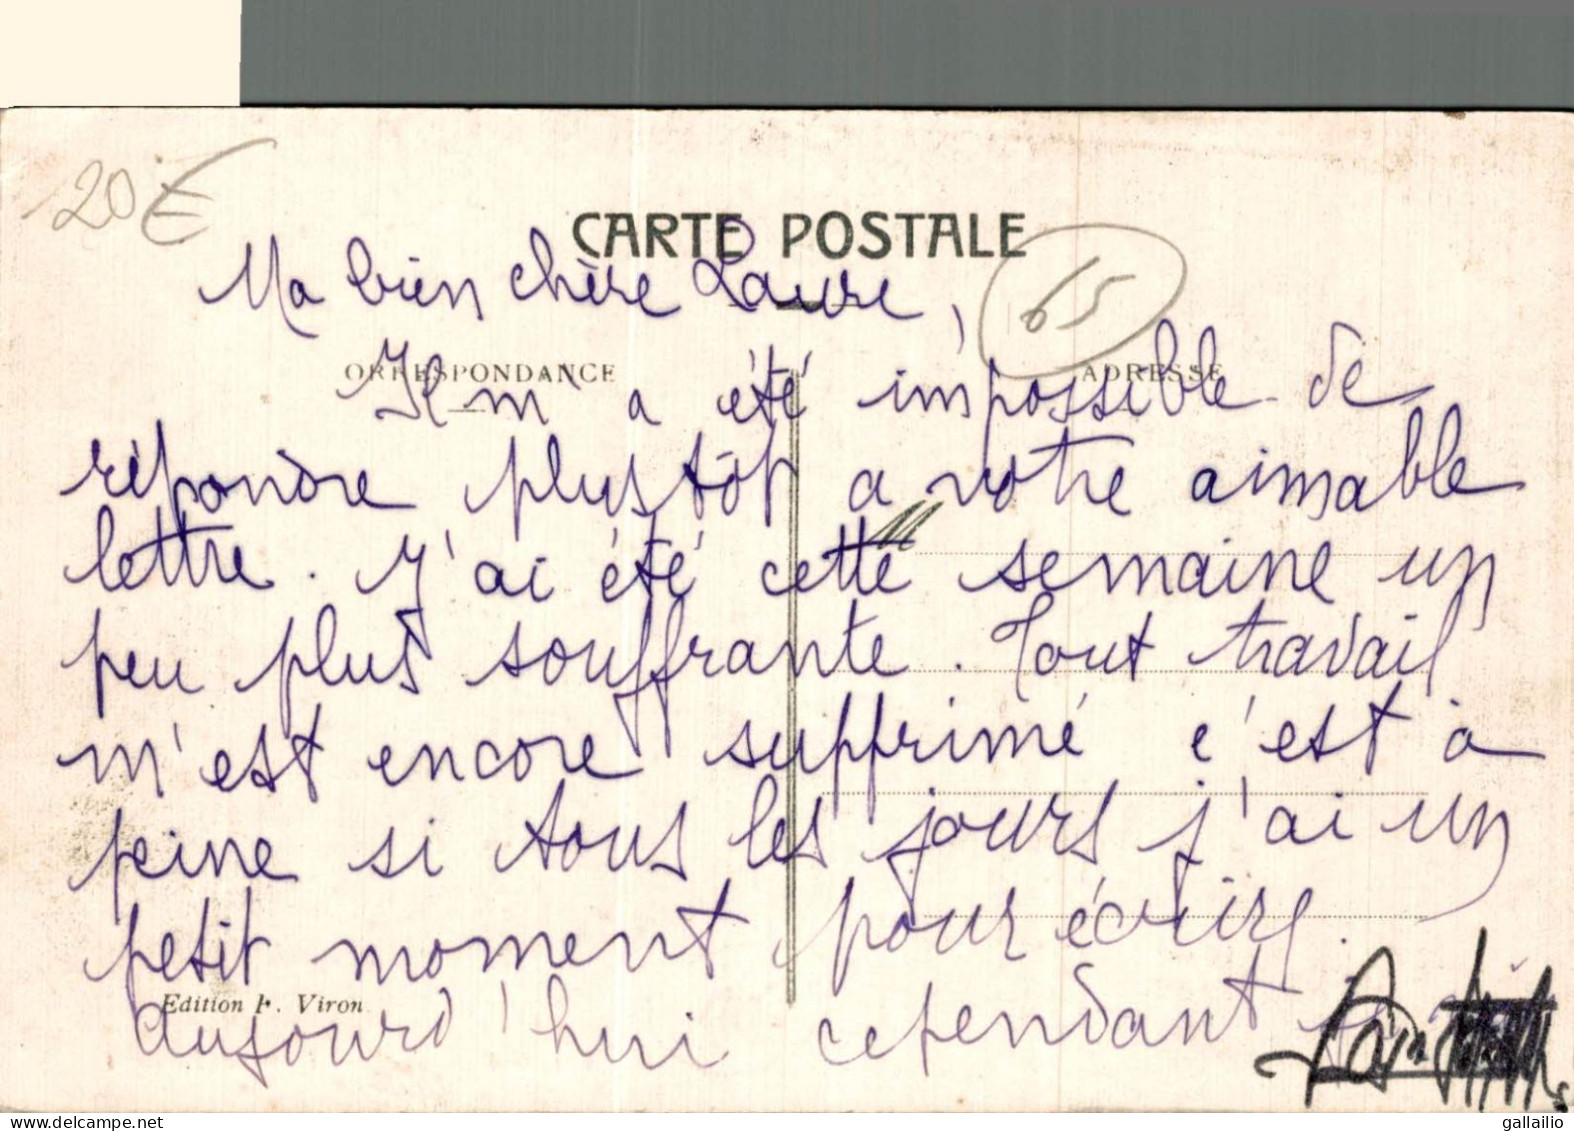 20 €
CARTE POSTALE
65
Ma bien chère Laure,
ORRESPONDANCE ADRESSE
Il m'a été impossible de
répondre plus tôt a votre aimable
lettre. J'ai été cette semaine un
peu plus souffrante. Tout travail
m'est encore supprimé c'est à
peine si tous les jours j'ai un
petit moment pour écrire.
Edition F. Viron
aujourd'hui cependant
delcampe.net
gallailio